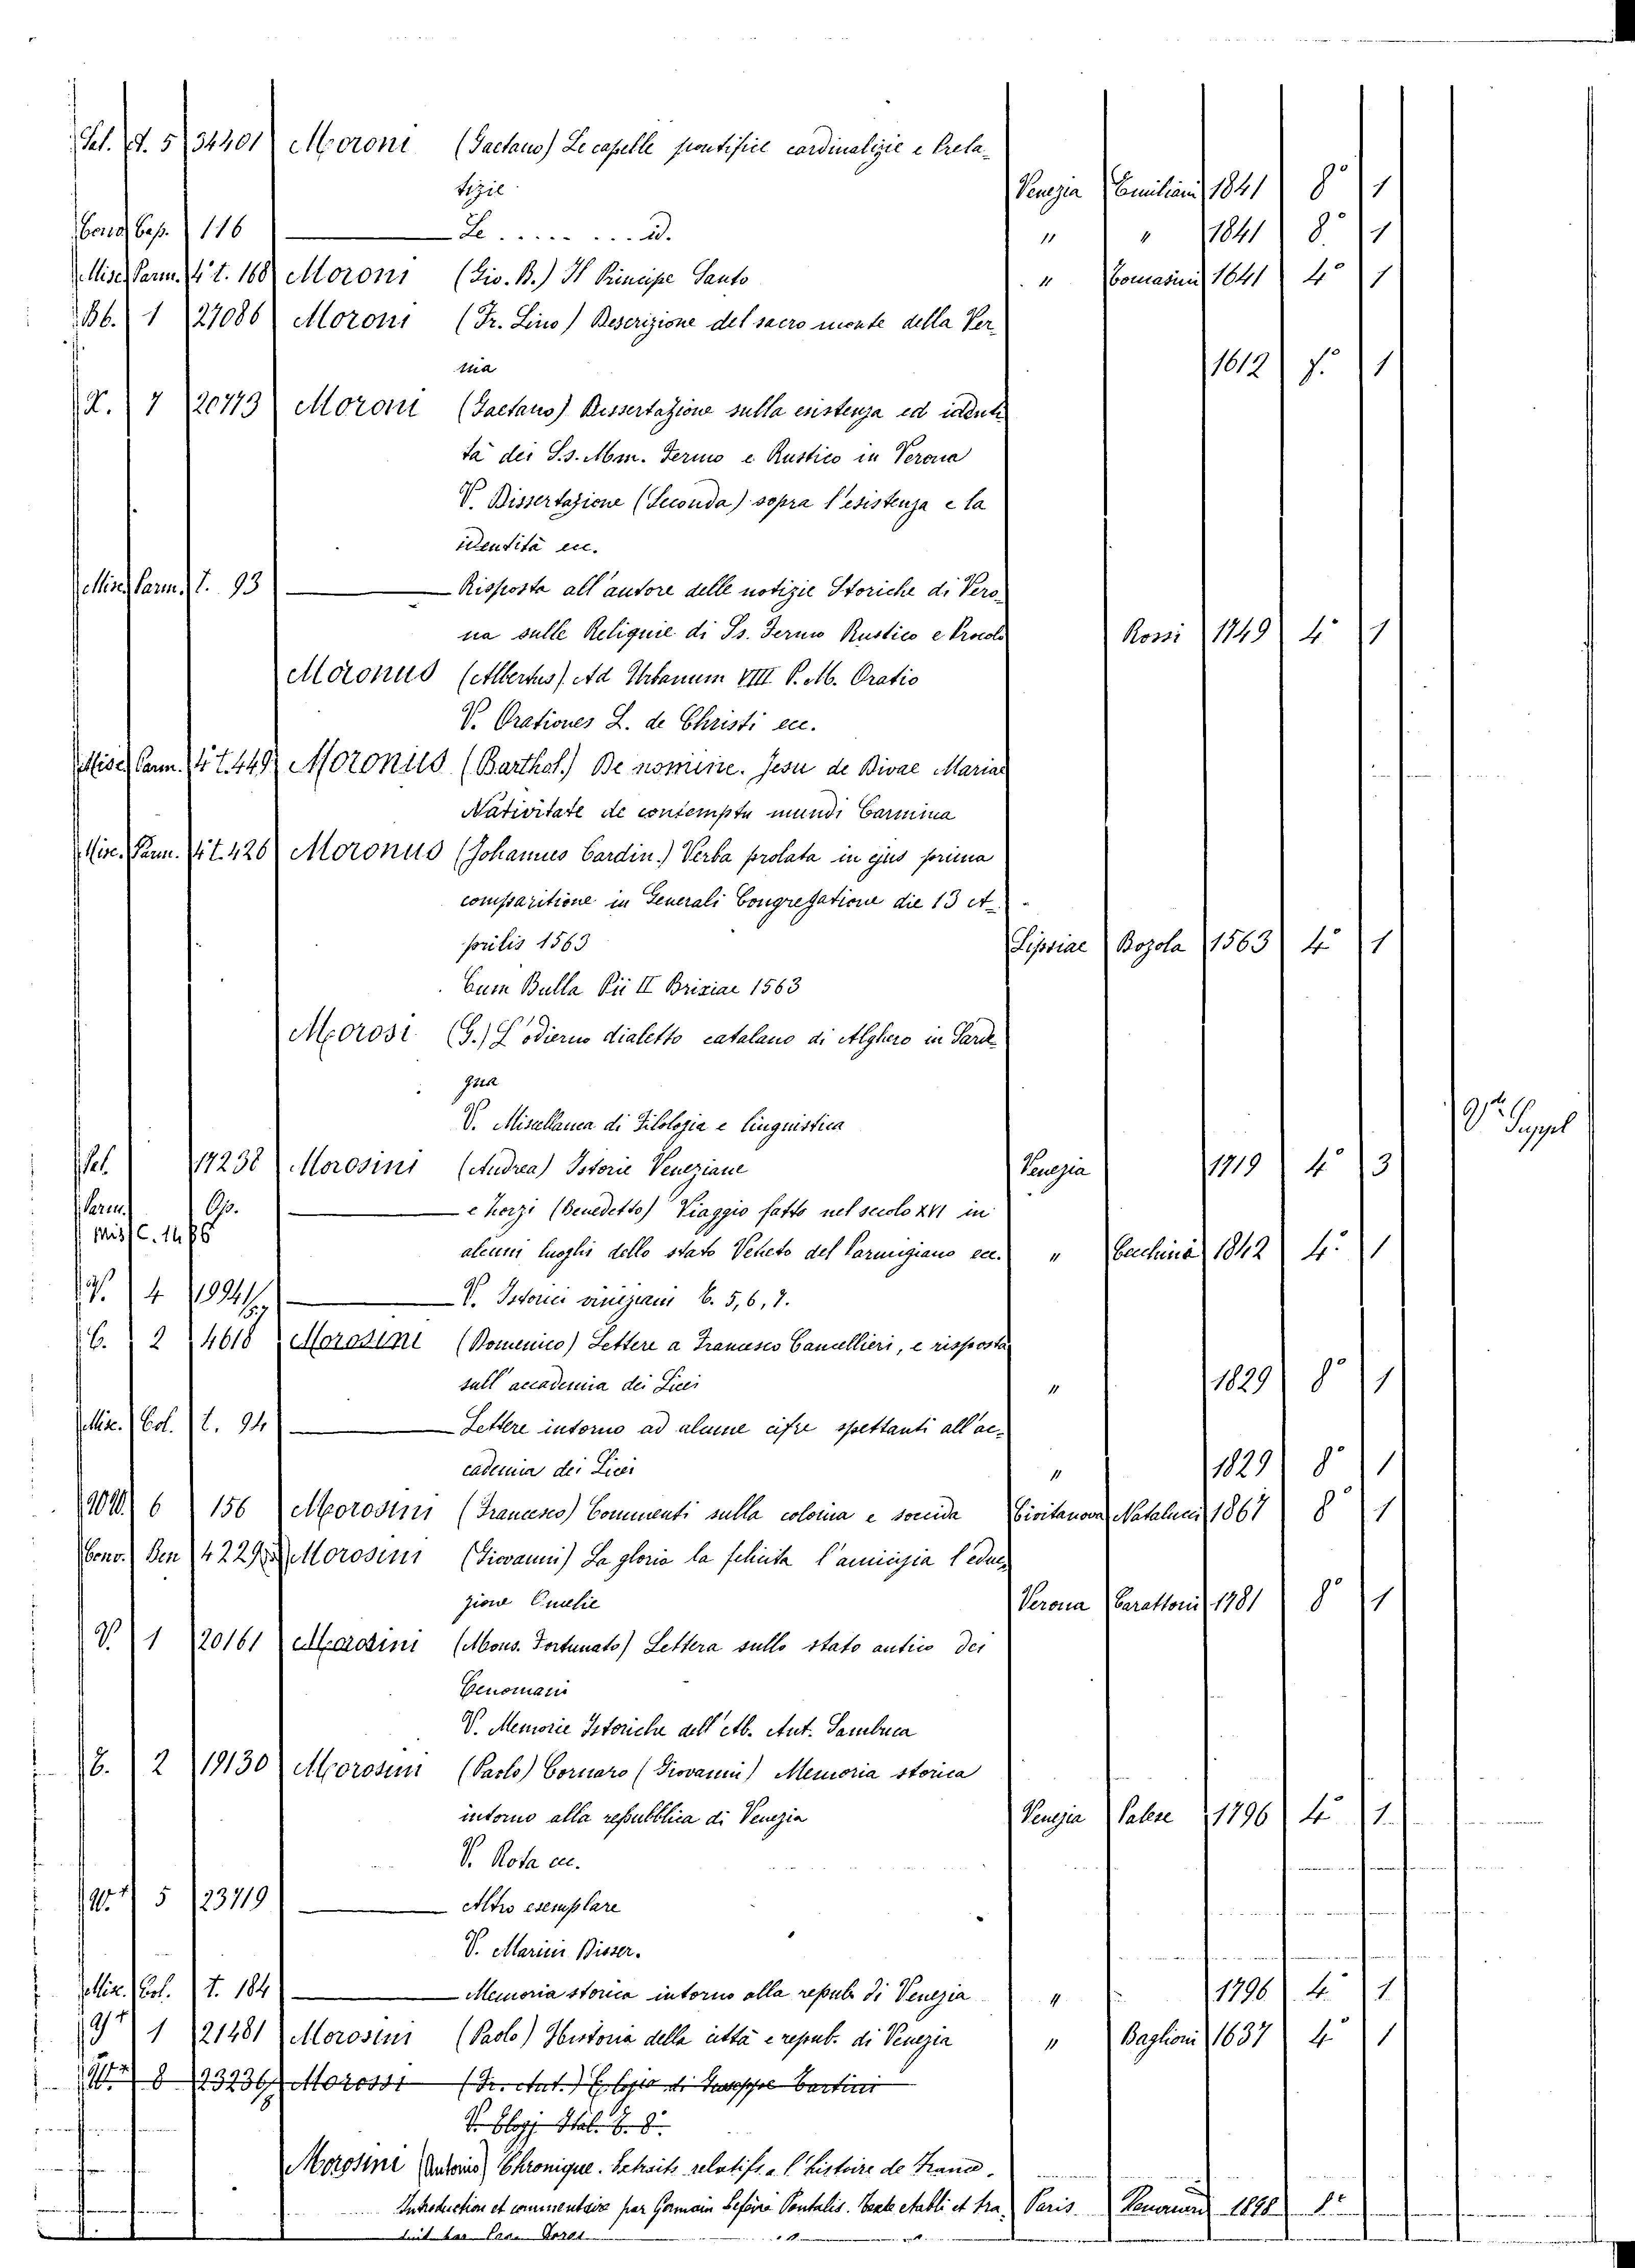 Sal. A. 5 34401 Moroni (Gaetano) Le capelle pontifice cardinalizie e Prela-
tizie Venezia Emiliani 1841 8° 1
Conv. Cap. 116 — Le ........ id. " " 1841 8° 1
Misc. Parm. 4° t. 168 Moroni (Gio. B.) Il Principe Santo " Tomasini 1641 4° 1
Bb. 1 27086 Moroni (Fr. Lino) Descrizione del sacro monte della Ver-
nia 1612 f.° 1
X. 7 20773 Moroni (Gaetano) Dissertazione sulla esistenza ed identi
tà dei S.s. Mm. Fermo e Rustico in Verona
V. Dissertazione (Seconda) sopra l'esistenza e la
identità ec.
Misc. Parm. t. 93 — Risposta all'autore delle notizie Storiche di Vero-
na sulle Reliquie di Ss. Fermo Rustico e Procolo Rossi 1749 4° 1
Moronus (Albertus) Ad Urbanum VIII P. M. Oratio
V. Orationes L. de Christi ec.
Misc. Parm. 4° t. 449 Moronus (Barthol.) De nomine Jesu de Divae Mariae
Nativitate de contemptu mundi Carmina
Misc. Parm. 4° t. 426 Moronus (Johannes Cardin.) Verba prolata in ejus prima
comparitione in Generali Congregatione die 13 A-
prilis 1563 Lipsiae Bozola 1563 4° 1
Cum Bulla Pii II Brixiae 1563
Morosi (G.) L'odierno dialetto catalano di Alghero in Sarde-
gna
V. Miscellanea di Filologia e linguistica V. Suppl
Pal. 17238 Morosini (Andrea) Istorie Veneziane Venezia 1719 4° 3
Parm. Op. — e Korzi (Benedetto) Viaggio fatto nel secolo XVI in
Misc. 1486 alcuni luoghi dello stato Veneto del Parmigiano ec. " Cecchini 1842 4° 1
V. 4 19941/57 — V. Istorici viniziani t. 5, 6, 7.
C. 2 4618 Morosini (Domenico) Lettere a Francesco Cancellieri, e risposta
sull'accademia dei Licei " 1829 8° 1
Misc. Col. t. 94 — Lettere intorno ad alcune cifre spettanti all'ac-
cademia dei Licei " 1829 8° 1
6 156 Morosini (Francesco) Commenti sulla colonia e soccida Civitanova Natalucci 1867 8° 1
Conv. Ben 4229 Morosini (Giovanni) La gloria la felicita l'amicizia l'educ-
zione Omelie Verona Carattoni 1781 8° 1
V. 1 20161 Morosini (Mons. Fortunato) Lettera sullo stato antico dei
Cenomani
V. Memorie Istoriche dell'Ab. Ant. Sambuca
6. 2 19130 Morosini (Paolo) Cornaro (Giovanni) Memoria storica
intorno alla repubblica di Venezia Venezia Palese 1796 4° 1
V. Rota ec.
5 23719 — Altro esemplare
V. Marini Disser.
Misc. Col. t. 184 — Memoria storica intorno alla repub. di Venezia " 1796 4° 1
1 21481 Morosini (Paolo) Historia della città e repub. di Venezia " Baglioni 1637 4° 1
8 23236 Morossi (Fr. Ant.) Elogio di Giuseppe Tartini
V. Elogj Ital. t. 8°
Morosini (Antonio) Chronique. Extraits relatifs a l'histoire de France.
Introduction et commentaire par Germain Lefèvre Pontalis. Texte etabli et tra- Paris Renouard 1898 8°
duit par Léon Dorez